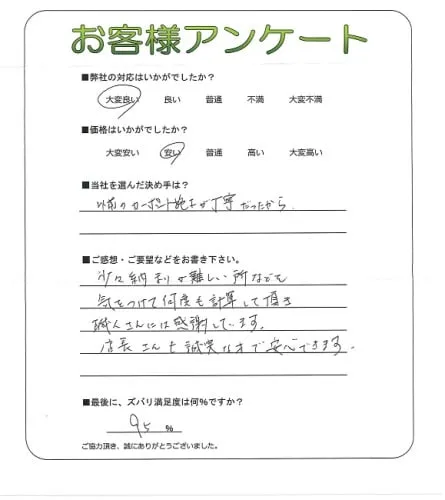 お客様アンケート
■弊社の対応はいかがでしたか?
大変良い 良い 普通 不満 大変不満
■価格はいかがでしたか?
大変安い 安い 普通 高い 大変高い
■当社を選んだ決め手は?
以前のカーポート施工が丁寧だったから.
■ご感想・ご要望などをお書き下さい。
少々納まりが難しい所なども
気をつけて何度も計算して頂き
職人さんには感謝しています.
店長さんも誠実な方で安心できます.
■最後に、ズバリ満足度は何%ですか?
95 %
ご協力頂き、誠にありがとうございました。